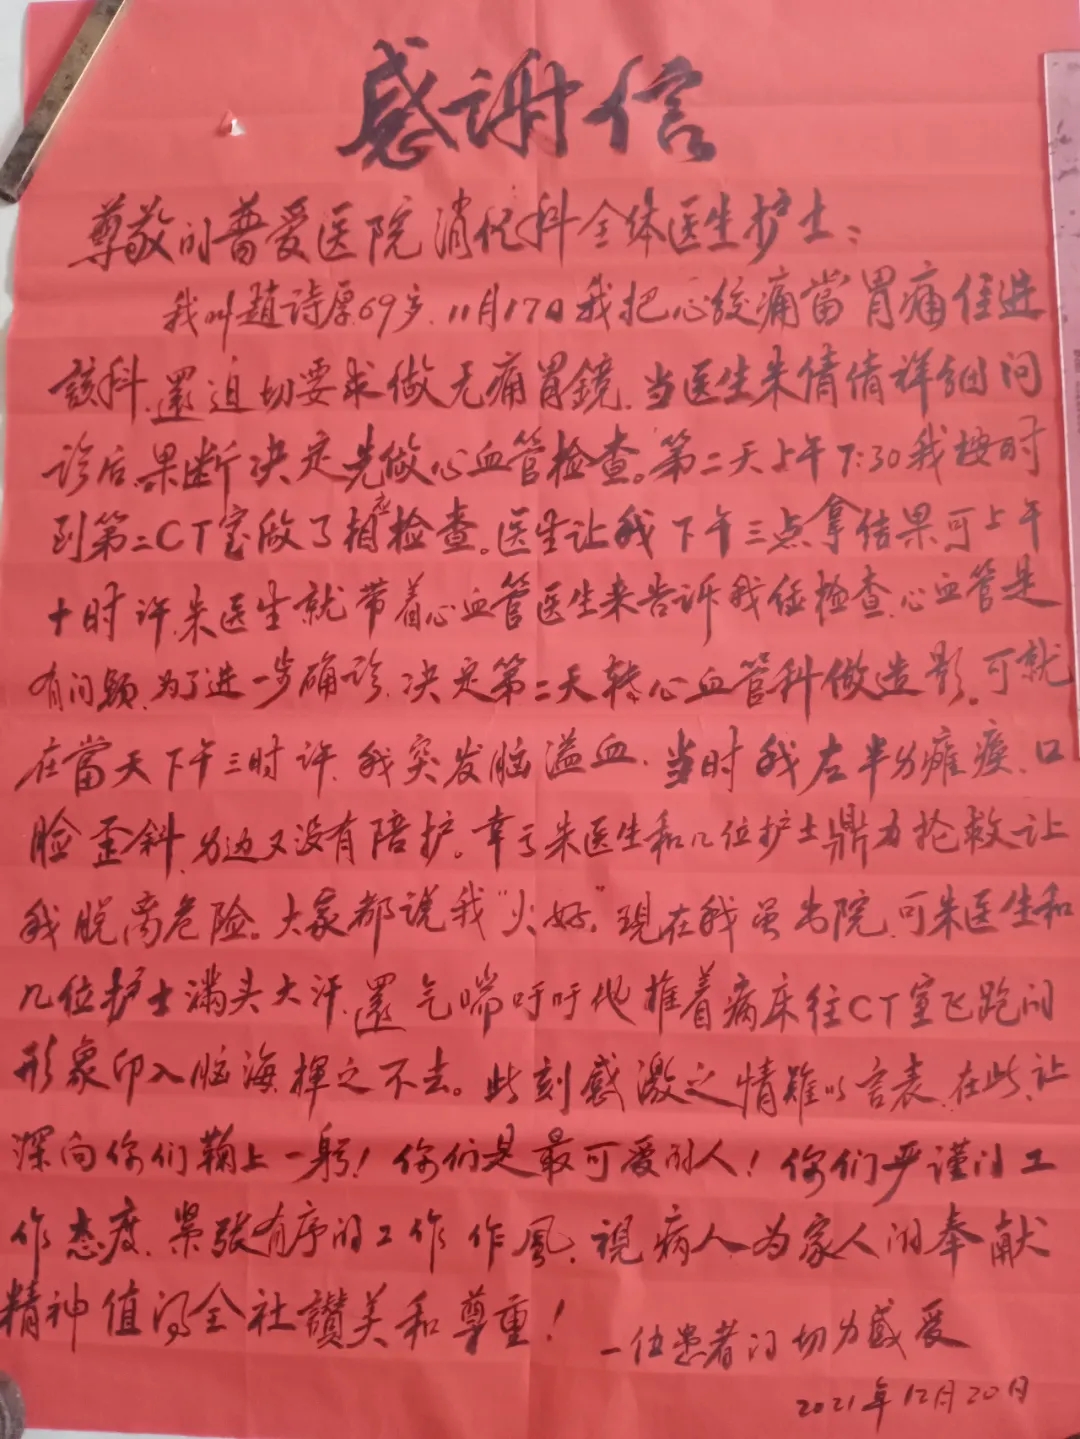 感谢信
尊敬的普爱医院消化科全体医生护士：
我叫趙诗厚69岁、11月17日我把心绞痛當胃痛住进
該科、還迫切要求做无痛胃鏡、当医生朱倩倩详细问
诊后、果断决定先做心血管检查。第二天上午7:30我按时
到第二CT室做了相应检查。医生让我下午三点拿结果可上午
十时许、朱医生就带着心血管医生来告诉我经检查、心血管是
有问题、为了进一步确诊、决定第二天转心血管科做造影。可就
在當天下午三时许、我突发脑溢血、当时我左半身瘫痪、口
脸歪斜、身边又没有陪护。幸亏朱医生和几位护士鼎力抢救让
我脱离危险。大家都说我“火好”。現在我虽出院、可朱医生和
几位护士满头大汗、還气喘吁吁地推着病床往CT室飞跑的
形象印入脑海、揮之不去。此刻感激之情難以言表、在此、让
深向你们鞠上一躬！你们是最可爱的人！你们严谨的工
作态度、紧张有序的工作作風、視病人为家人的奉献
精神值得全社讚美和尊重！
一位患者的切身感爱
2021年12月20日